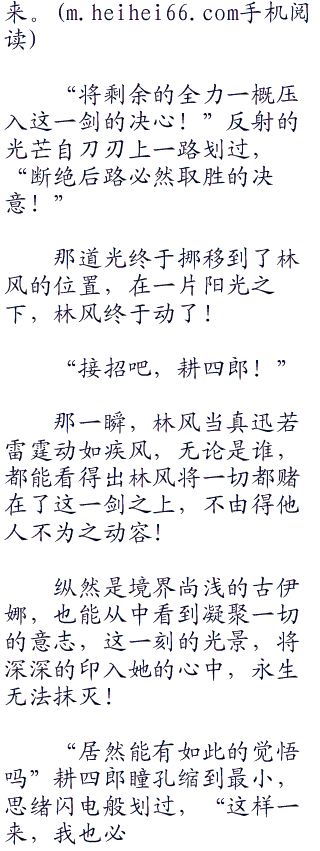 来。(m.heihei66.com手机阅
读)
“将剩余的全力一概压
入这一剑的决心！”反射的
光芒自刀刃上一路划过，
“断绝后路必然取胜的决
意！”
那道光终于挪移到了林
风的位置，在一片阳光之
下，林风终于动了！
“接招吧，耕四郎！”
那一瞬，林风当真迅若
雷霆动如疾风，无论是谁，
都能看得出林风将一切都赌
在了这一剑之上，不由得他
人不为之动容！
纵然是境界尚浅的古伊
娜，也能从中看到凝聚一切
的意志，这一刻的光景，将
深深的印入她的心中，永生
无法抹灭！
“居然能有如此的觉悟
吗”耕四郎瞳孔缩到最小，
思绪闪电般划过，“这样一
来，我也必